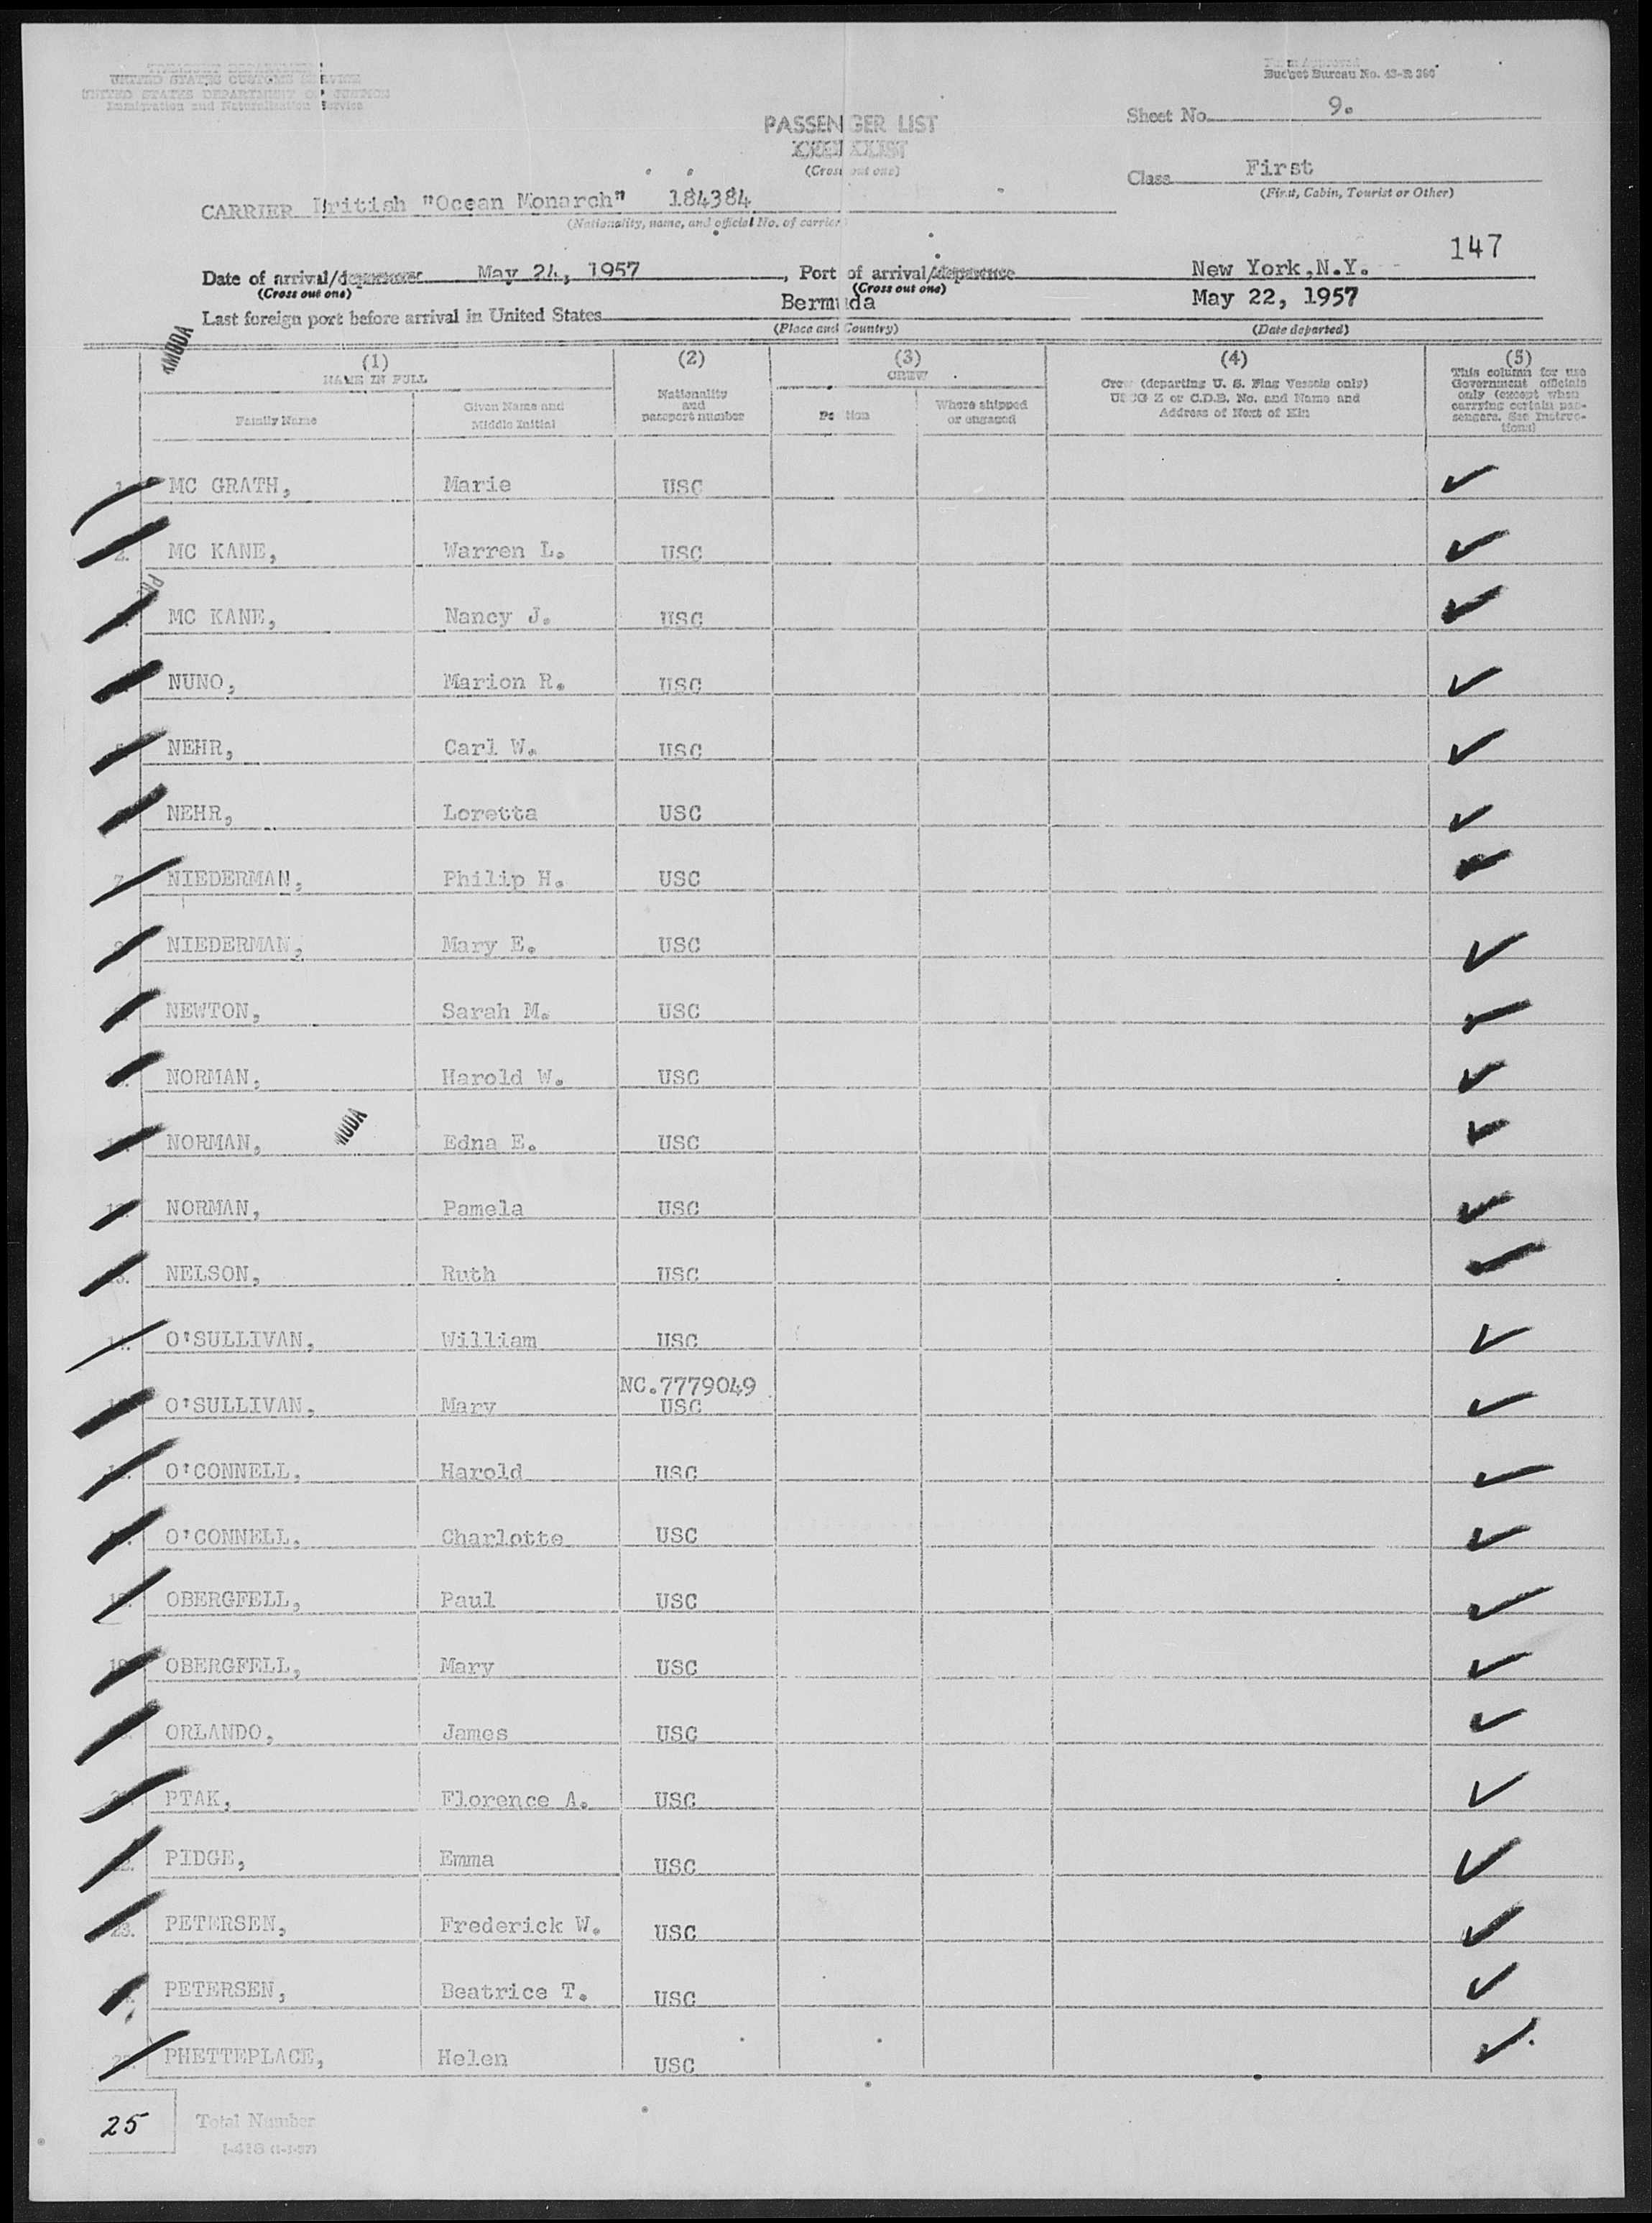 TREASURY DEPARTMENT
UNITED STATES CUSTOMS SERVICE
UNITED STATES DEPARTMENT OF JUSTICE
Immigration and Naturalization Service
Form Approved
Budget Bureau No. 43-R 366
Sheet No. 9.
PASSENGER LIST
(Cross out one)
Class First
(First, Cabin, Tourist or Other)
CARRIER British "Ocean Monarch" 184384
(Nationality, name, and official No. of carrier)
147
Date of arrival/departure May 24, 1957, Port of arrival/departure New York, N.Y.
(Cross out one) (Cross out one)
Last foreign port before arrival in United States Bermuda May 22, 1957
(Place and Country) (Date departed)
MUDA
(1) (2) (3) (4) (5)
NAME IN FULL
Family Name
Given Name and Middle Initial
Nationality and passport number
CREW
Position
Where shipped or engaged
Crew (departing U. S. Flag Vessels only)
USCG Z or C.D.B. No. and Name and
Address of Next of Kin
This column for use Government officials only (except when carrying certain passengers. See Instructions)
MC GRATH, Marie USC
2. MC KANE, Warren L. USC
MC KANE, Nancy J. USC
NUNO, Marion R. USC
NEHR, Carl W. USC
NEHR, Loretta USC
7. NIEDERMAN, Philip H. USC
NIEDERMAN, Mary E. USC
NEWTON, Sarah M. USC
NORMAN, Harold W. USC
MUDA
NORMAN, Edna E. USC
NORMAN, Pamela USC
13. NELSON, Ruth USC
14. O'SULLIVAN, William USC
NC.7779049
O'SULLIVAN, Mary USC
O'CONNELL, Harold USC
O'CONNELL, Charlotte USC
OBERGFELL, Paul USC
19. OBERGFELL, Mary USC
ORLANDO, James USC
PTAK, Florence A. USC
22. PIDGE, Emma USC
23. PETERSEN, Frederick W. USC
PETERSEN, Beatrice T. USC
25. PHETTEPLACE, Helen USC
25 Total Number
I-418 (1-1-57)